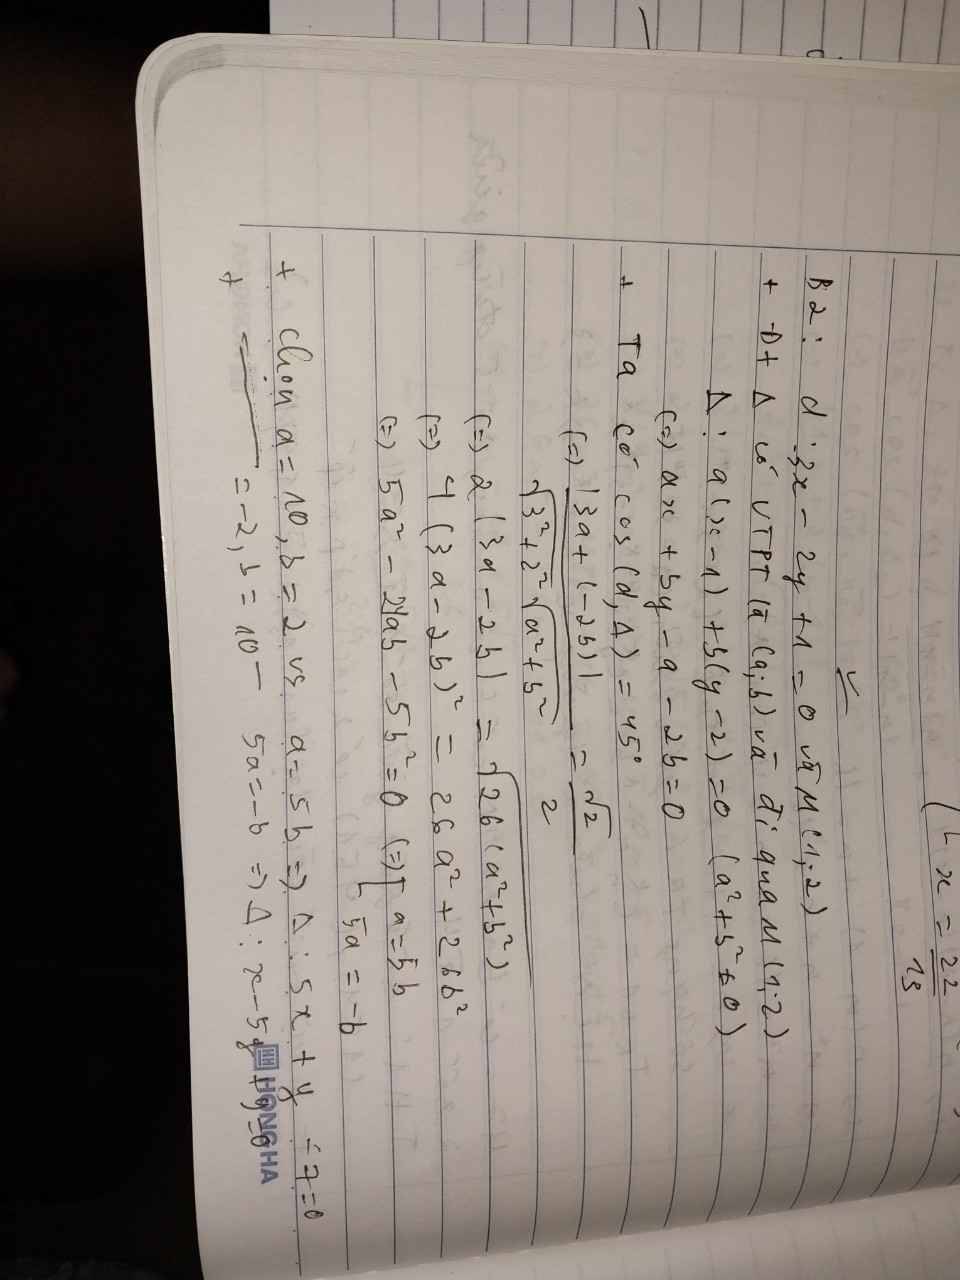 x = 22
15
B2: d: 3x - 2y + 1 = 0 và M(1;2)
+ Đt Δ có VTPT là (a;b) và đi qua M(1;2)
Δ: a(x-1) + b(y-2) = 0 (a² + b² ≠ 0)
(=) ax + by - a - 2b = 0
+ Ta có cos(d,Δ) = 45°
(=) |3a + (-2b)| / √3²+2² √a²+b² = √2 / 2
(=) 2|3a - 2b| = √26(a²+b²)
(=) 4(3a - 2b)² = 26a² + 26b²
(=) 5a² - 24ab - 5b² = 0 (=) [ a = 5b
5a = -b
+ chọn a = 10, b = 2 vs a = 5b => Δ: 5x + y - 7 = 0
+ = -2, b = 10 - 5a = -b => Δ: x - 5y + 9 = 0
HONG HA